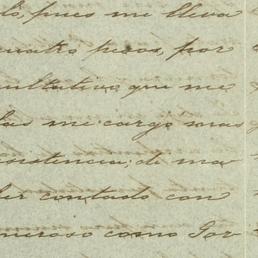 lo, pues me lleva
cuatro pesos, por
cultativo que me
las me cargo mas
sistencia; de ma-
ber contado con
neroso como Gor-